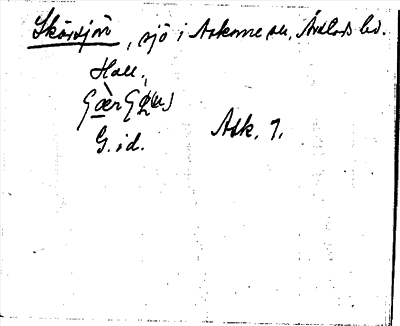 Skärsjön, sjö i Askome sn, Årstads hd.
Hall.
G. id. Ask. 7.